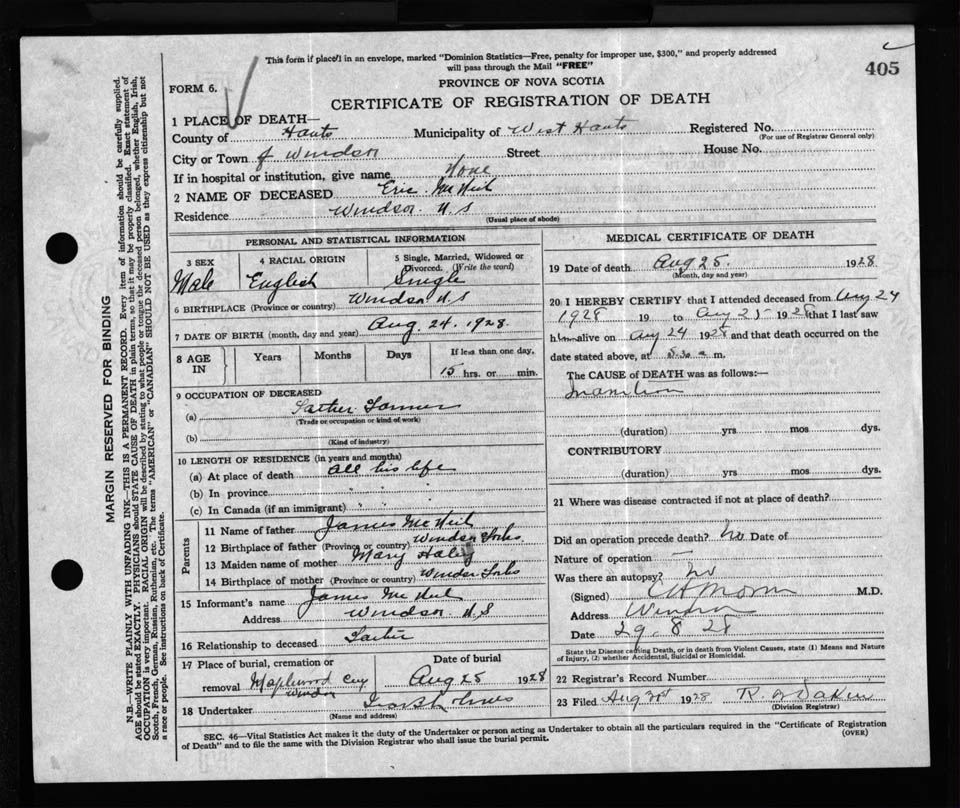 This form if placed in an envelope, marked "Dominion Statistics—Free, penalty for improper use, $300," and properly addressed
will pass through the Mail "FREE"
405
PROVINCE OF NOVA SCOTIA
FORM 6.
CERTIFICATE OF REGISTRATION OF DEATH
1 PLACE OF DEATH—
County of Hants Municipality of West Hants Registered No.
(For use of Registrar General only)
City or Town of Windsor Street House No.
If in hospital or institution, give name None
2 NAME OF DECEASED Eric McNeil
Residence Windsor N.S
(Usual place of abode)
PERSONAL AND STATISTICAL INFORMATION
3 SEX 4 RACIAL ORIGIN 5 Single, Married, Widowed or
Divorced. (Write the word)
Male English Single
6 BIRTHPLACE (Province or country) Windsor N S
7 DATE OF BIRTH (month, day and year) Aug. 24. 1928.
8 AGE IN Years Months Days If less than one day,
15 hrs. or min.
9 OCCUPATION OF DECEASED
(a) Father Farmer
(Trade or occupation or kind of work)
(b)
(Kind of industry)
10 LENGTH OF RESIDENCE (in years and months)
(a) At place of death all his life
(b) In province " " "
(c) In Canada (if an immigrant) " " "
Parents
11 Name of father James McNeil
12 Birthplace of father (Province or country) Windsor Forks
13 Maiden name of mother Mary Haley
14 Birthplace of mother (Province or country) Windsor Forks
15 Informant's name James McNeil
Address Windsor N S
16 Relationship to deceased Father
17 Place of burial, cremation or Date of burial
removal Maplewood Cey Windsor Aug 25 1928
18 Undertaker
(Name and address)
MEDICAL CERTIFICATE OF DEATH
19 Date of death Aug 25. 1928.
(Month, day and year)
20 I HEREBY CERTIFY that I attended deceased from Aug 24
1928 19 to Aug 25 1928 that I last saw
him alive on Aug 24 1928 and that death occurred on the
date stated above, at 5.30 a m.
The CAUSE OF DEATH was as follows:—
Inanition
(duration) yrs mos dys.
CONTRIBUTORY
(duration) yrs mos dys.
21 Where was disease contracted if not at place of death?
Did an operation precede death? No Date of
Nature of operation —
Was there an autopsy? No
(Signed) M.D.
Address Windsor
Date 29. 8. 28
State the Disease causing Death, or in death from Violent Causes, state (1) Means and Nature
of Injury, (2) whether Accidental, Suicidal or Homicidal.
22 Registrar's Record Number
23 Filed Aug 1928
(Division Registrar)
SEC. 46—Vital Statistics Act makes it the duty of the Undertaker or person acting as Undertaker to obtain all the particulars required in the "Certificate of Registration
of Death" and to file the same with the Division Registrar who shall issue the burial permit.
(OVER)
MARGIN RESERVED FOR BINDING
N.B.—WRITE PLAINLY WITH UNFADING INK—THIS IS A PERMANENT RECORD. Every item of information should be carefully supplied.
AGE should be stated EXACTLY. PHYSICIANS should STATE CAUSE OF DEATH in plain terms, so that it may be properly classified. Exact statement of
OCCUPATION is very important. RACIAL ORIGIN will be described by stating to what people or tongue the deceased person belonged, whether English, Irish,
Scotch, French, German, Russian, Ruthenian, etc. The terms "AMERICAN" or "CANADIAN" SHOULD NOT BE USED as they express citizenship but not
a race or people. See instructions on back of Certificate.